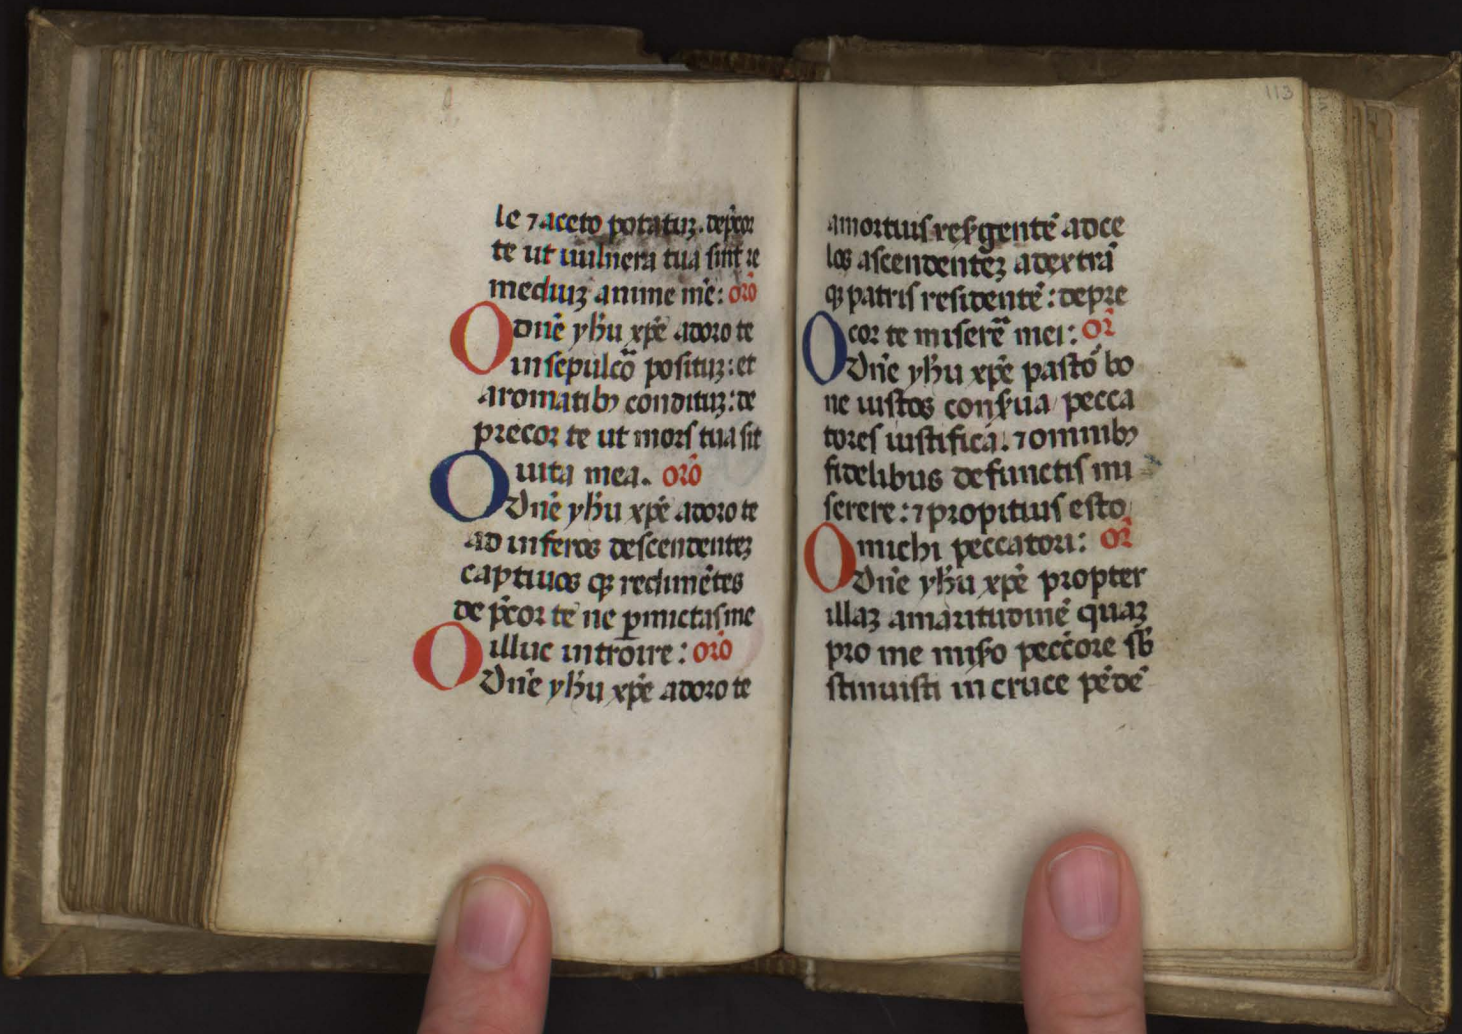 le ⁊ aceto potatuꝫ. dep̄cor
te ut uulnera tua sint re
mediuꝫ anime mē: orō
O dn̄e yħu xp̄e adoro te
in sepulcͣo posituꝫ: et
aromatibꝰ condituꝫ: de
precor te ut mors tua sit
uita mea. orō
O Dn̄e yħu xp̄e adoro te
ad inferos descendenteꝫ
captiuos qꝫ redimētes
de p̄cor te ne ꝑmictas me
illuc introire: orō
O Dn̄e yħu xp̄e adoro te
113
amortuis resꝰgentē adce
los ascendenteꝫ adextrā
qꝫ patris residentē: depre
cor te miserēͣ mei: or̄
O Dn̄e yħu xp̄e pastō bo
ne iustos conẜua pecca
tores iustificā. ⁊ omnibꝰ
fidelibus defunctis mi
serere: ⁊ propitius esto
michi peccatori: or̄
O Dn̄e yħu xp̄e propter
illaꝫ amaritudinē quaꝫ
pro me miẜo peccōre sƀ
stinuisti in cruce pēdē